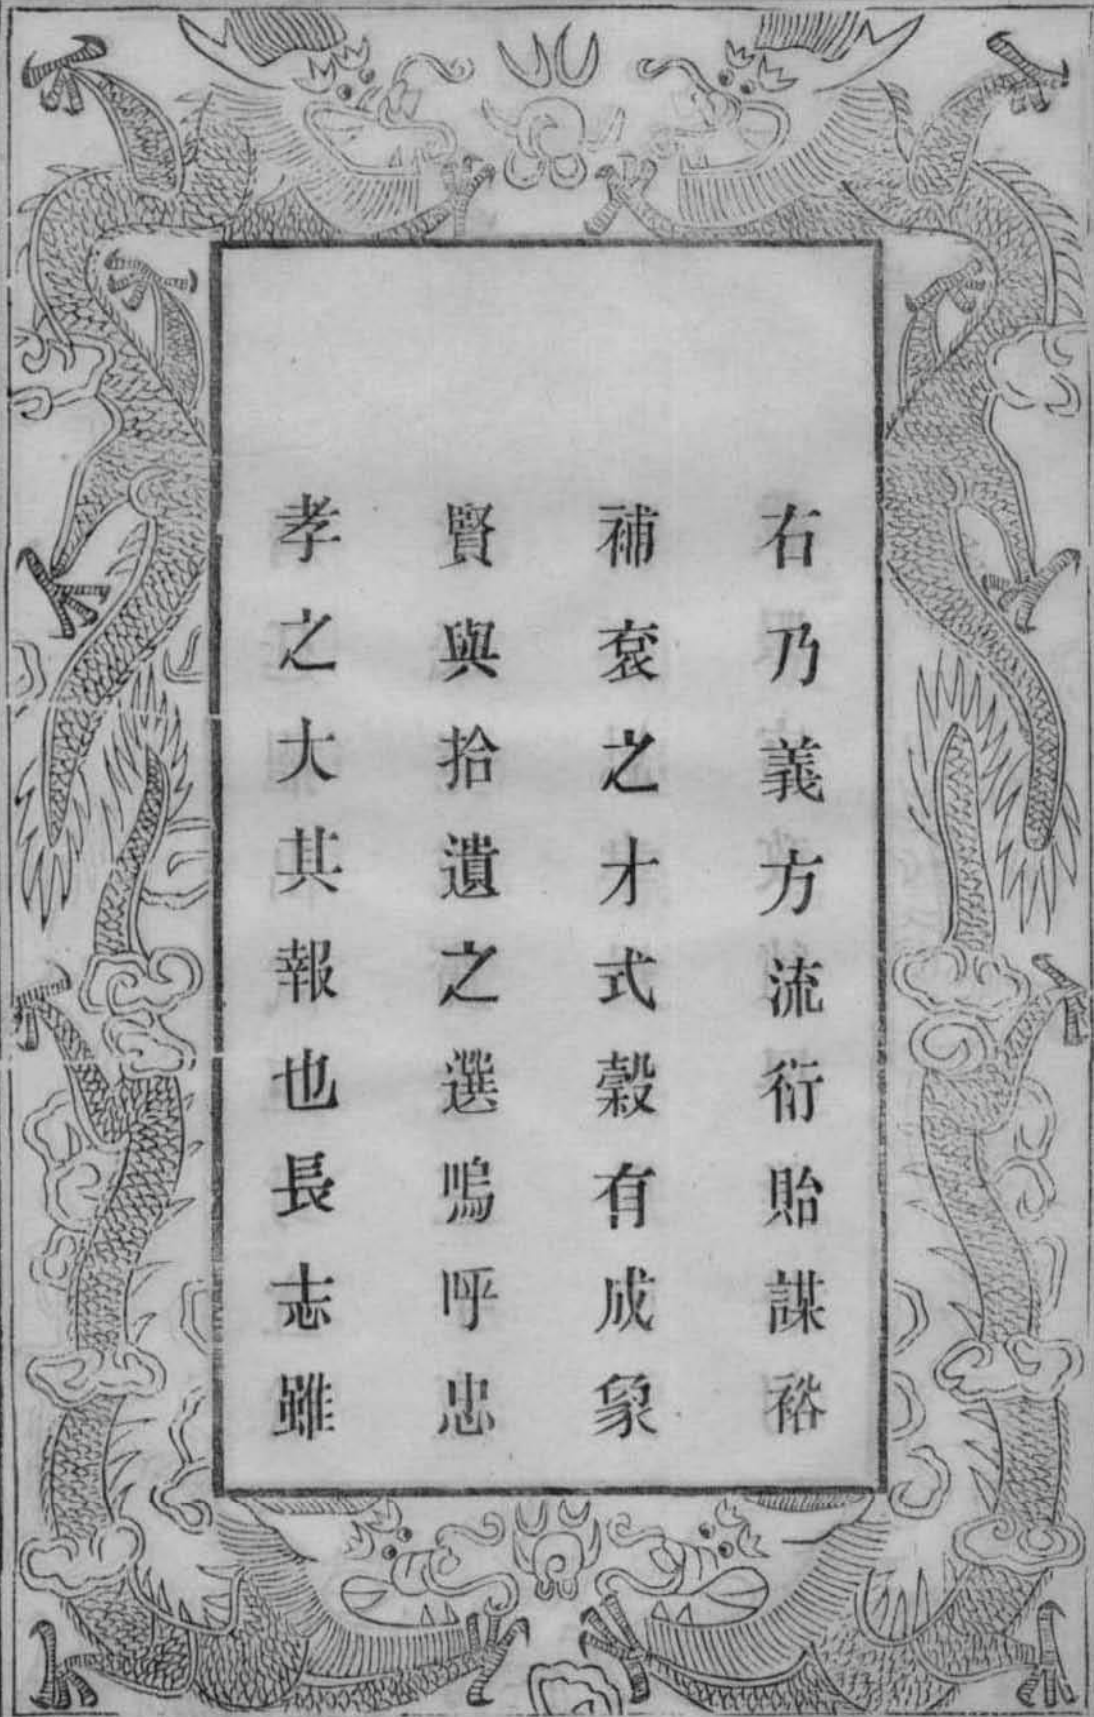 右乃義方流衍貽謀裕
補衮之才式糓有成象
賢與拾遺之選嗚呼忠
孝之大其報也長志雖